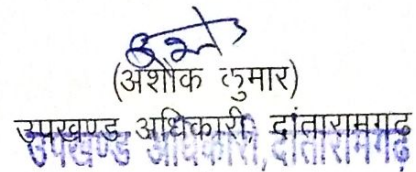 (अशोक कुमार)
उपखण्ड अधिकारी, दांतारामगढ़
उपखण्ड अधिकारी, दांतारामगढ़